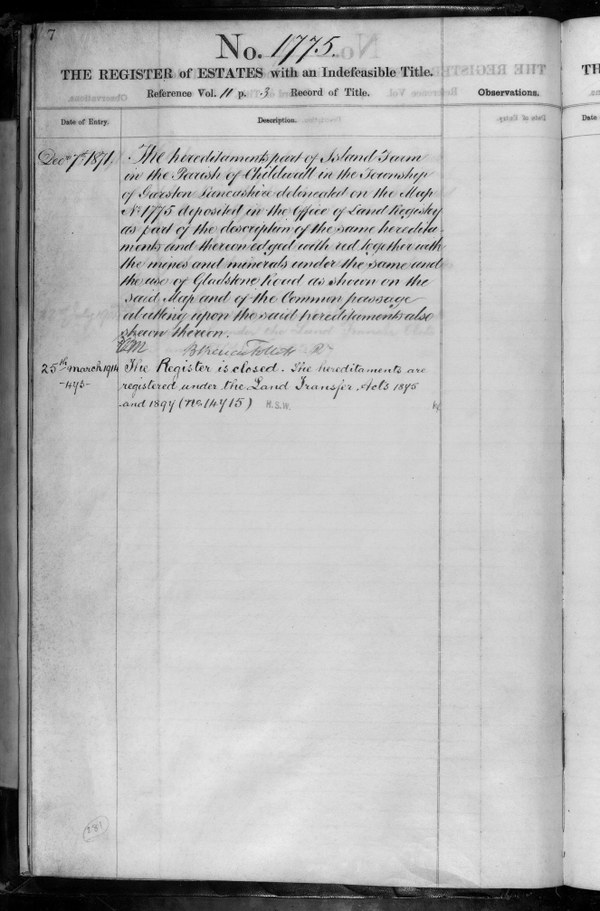 7
No. 1775.
THE REGISTER of ESTATES with an Indefeasible Title.
Reference Vol. 11 p. 3 Record of Title. Observations.
Date of Entry. Description.
Decr 7th 1871 The hereditaments part of Island Farm
in the Parish of Childwall in the Township
of Garston Lancashire delineated on the Map
No 1775 deposited in the Office of Land Registry
as part of the description of the same heredita-
ments and thereon edged with red together with
the mines and minerals under the same and
the use of Gladstone Road as shown on the
said Map and of the Common passage
abutting upon the said hereditaments also
shewn thereon.
25th March 1914 The Register is closed. The hereditaments are
-475- registered under the Land Transfer Acts 1875
and 1897 (No. 14715) H.S.W.
281
TH
Date